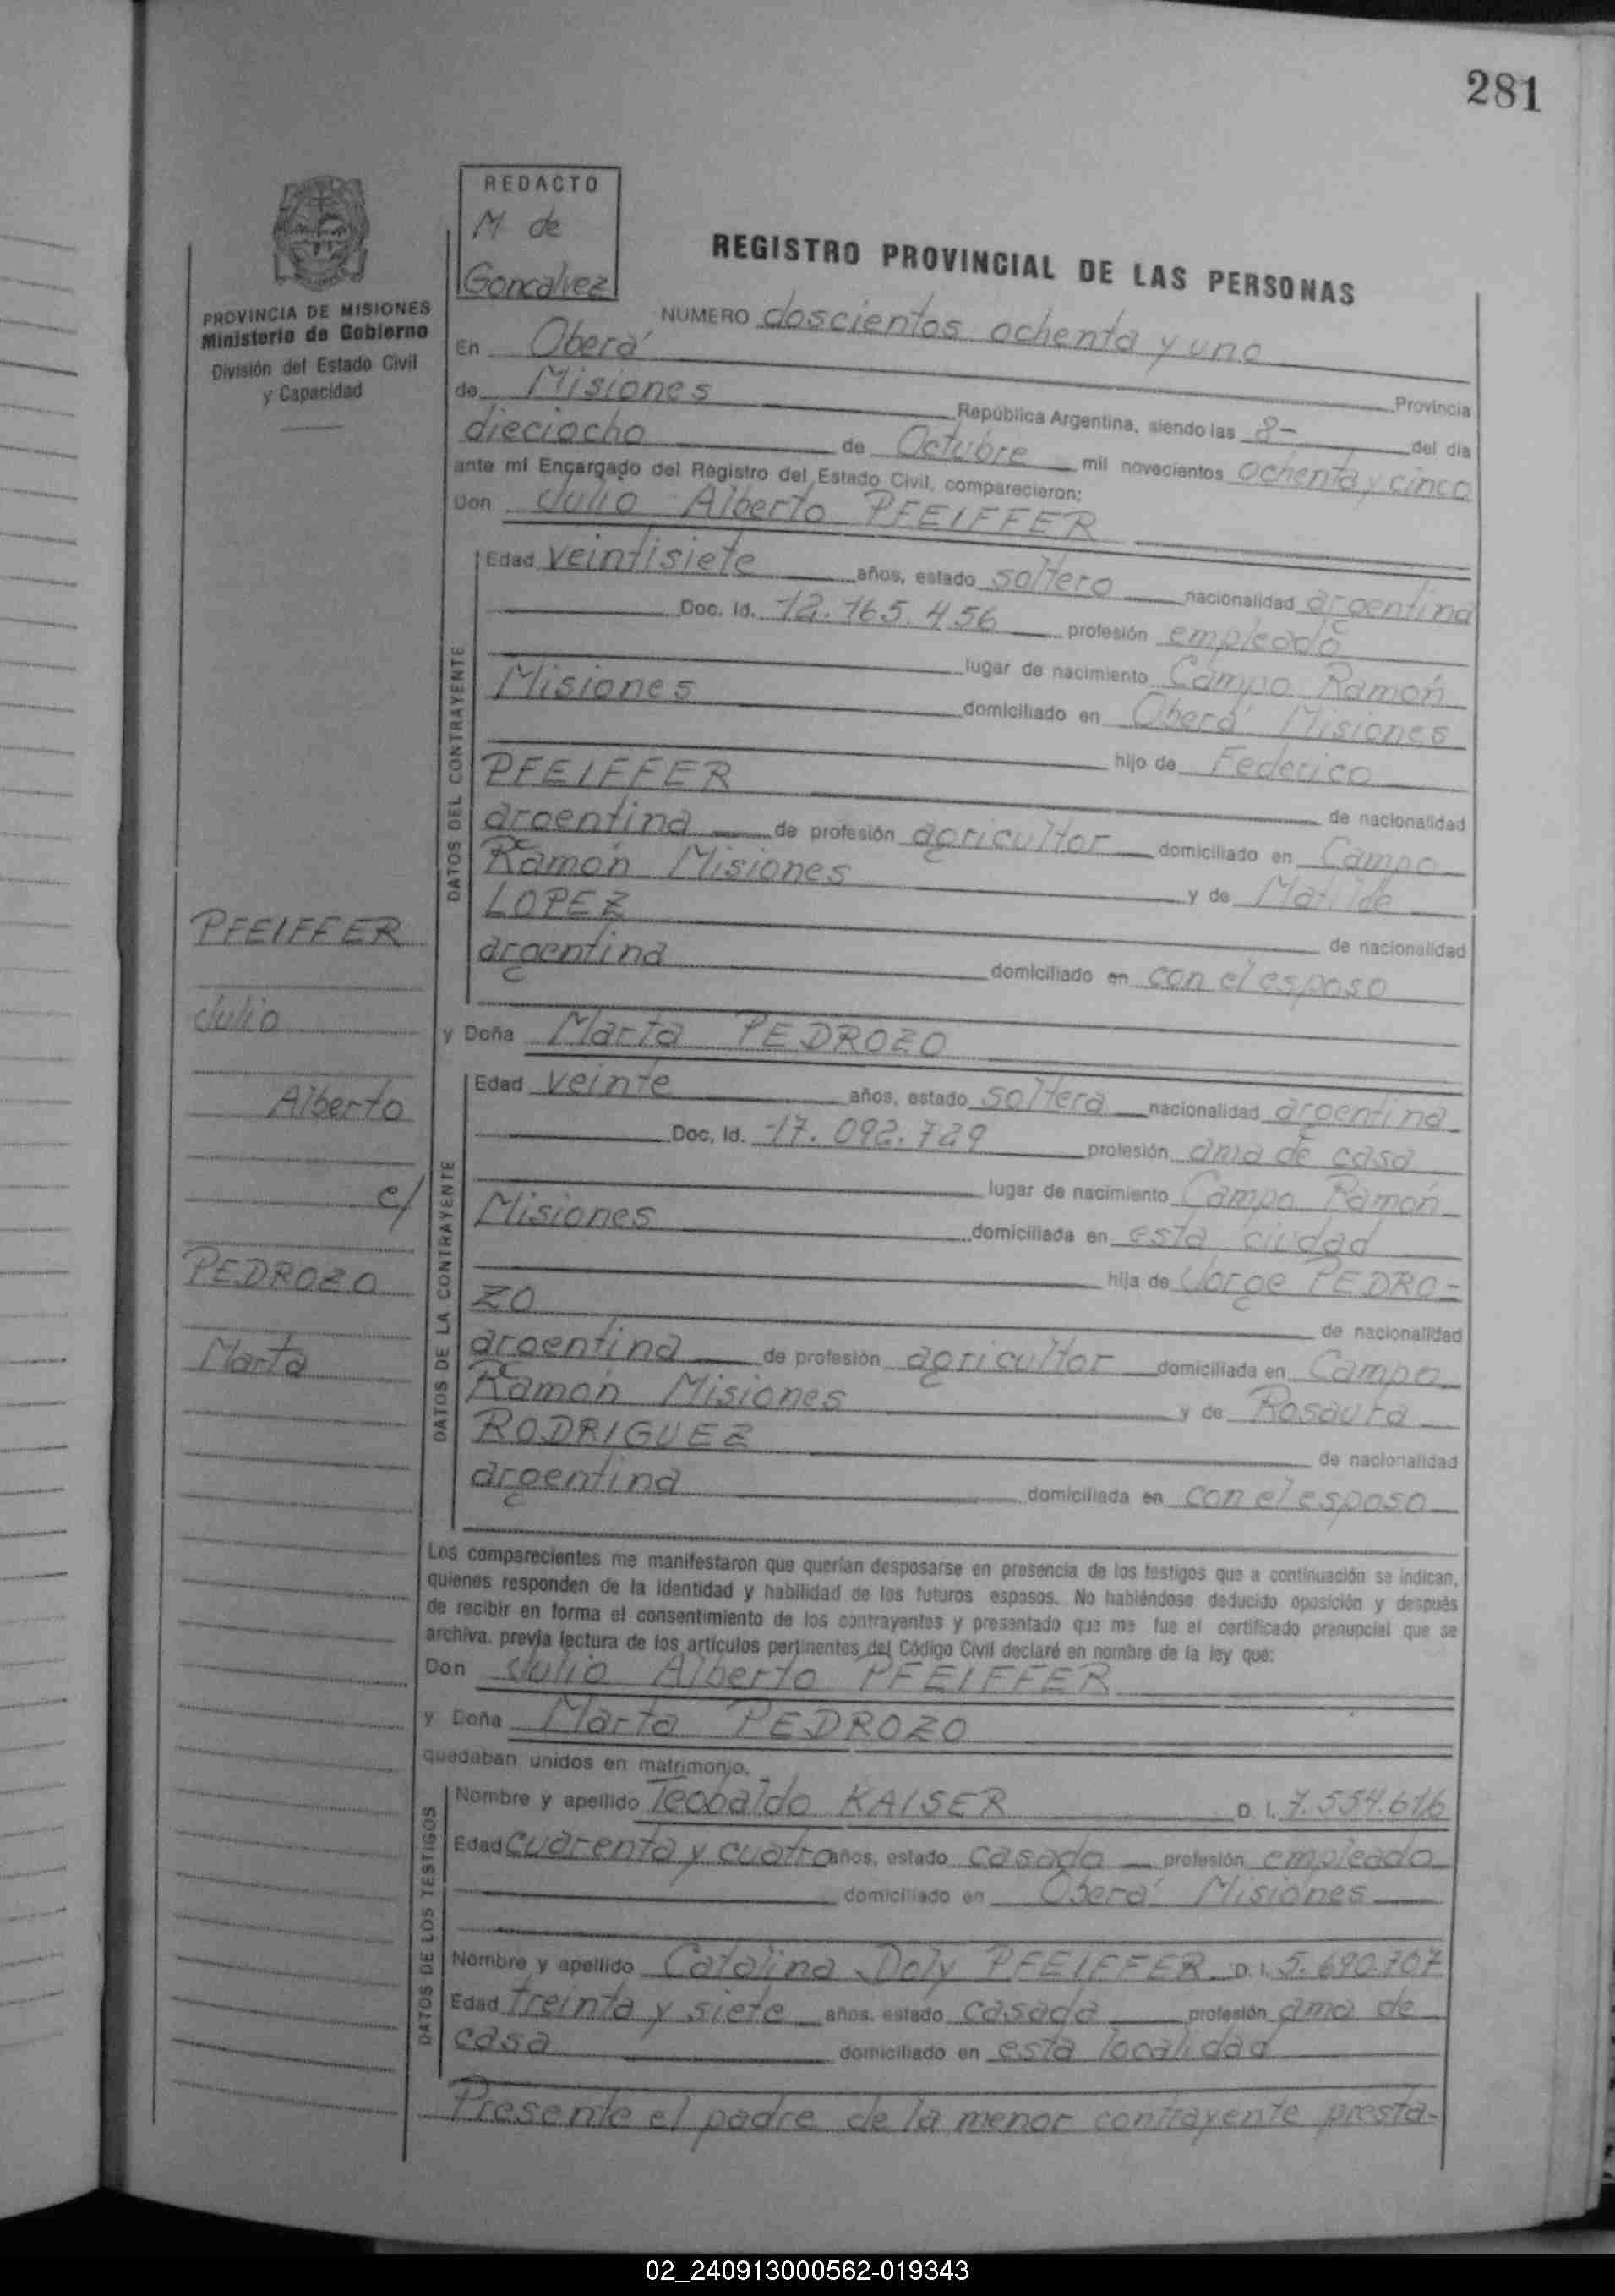 281
REDACTO
M de
Goncalvez
REGISTRO PROVINCIAL DE LAS PERSONAS
PROVINCIA DE MISIONES
Ministerio de Gobierno
División del Estado Civil
y Capacidad
NUMERO doscientos ochenta y uno
En Oberá Provincia
de Misiones República Argentina, siendo las 8- del día
dieciocho de Octubre mil novecientos ochenta y cinco
ante mí Encargado del Registro del Estado Civil, comparecieron:
Don Julio Alberto PFEIFFER
DATOS DEL CONTRAYENTE
Edad veintisiete años, estado soltero nacionalidad argentina
Doc. Id. 12.165.456 profesión empleado
lugar de nacimiento Campo Ramón
Misiones domiciliado en Oberá Misiones
hijo de Federico
PFEIFFER de nacionalidad
argentina de profesión agricultor domiciliado en Campo
Ramón Misiones y de Matilde
LOPEZ de nacionalidad
argentina domiciliado en con el esposo
y Doña Marta PEDROZO
DATOS DE LA CONTRAYENTE
Edad veinte años, estado soltera nacionalidad argentina
Doc. Id. 17.092.729 profesión ama de casa
lugar de nacimiento Campo Ramón
Misiones domiciliada en esta ciudad
hija de Jorge PEDRO=
ZO de nacionalidad
argentina de profesión agricultor domiciliada en Campo
Ramón Misiones y de Rosaura
RODRIGUEZ de nacionalidad
argentina domiciliada en con el esposo
PFEIFFER
Julio
Alberto
c/
PEDROZO
Marta
Los comparecientes me manifestaron que querían desposarse en presencia de los testigos que a continuación se indican,
quienes responden de la identidad y habilidad de los futuros esposos. No habiéndose deducido oposición y después
de recibir en forma el consentimiento de los contrayentes y presentado que me fue el certificado prenupcial que se
archiva, previa lectura de los artículos pertinentes del Código Civil declaré en nombre de la ley que:
Don Julio Alberto PFEIFFER
y Doña Marta PEDROZO
quedaban unidos en matrimonio.
DATOS DE LOS TESTIGOS
Nombre y apellido Teobaldo KAISER D. I. 7.554.616
Edad cuarenta y cuatro años, estado casado profesión empleado
domiciliado en Oberá Misiones
Nombre y apellido Catalina Doly PFEIFFER D. I. 5.690.707
Edad treinta y siete años, estado casada profesión ama de
casa domiciliado en esta localidad
Presente el padre de la menor contrayente presta-
02_240913000562-019343